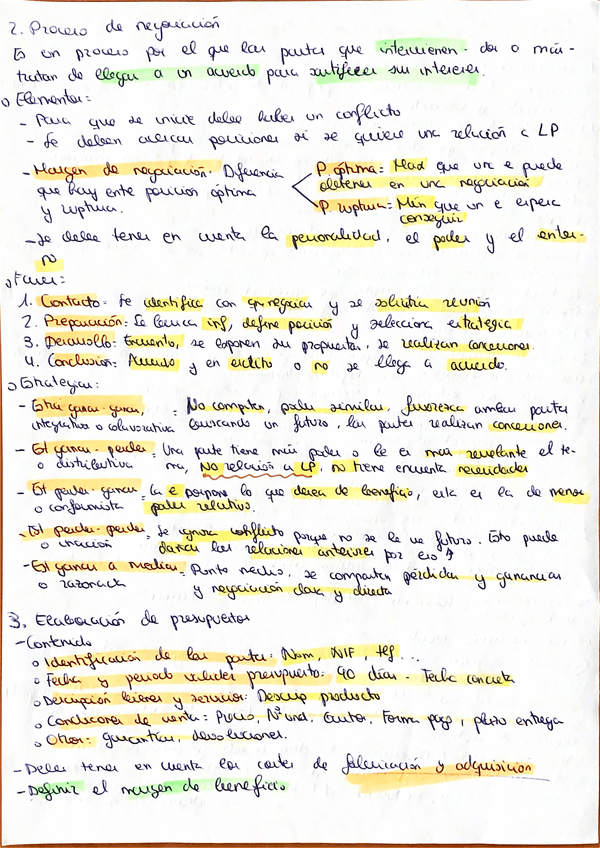 2. Proceso de negociación
Es un proceso por el que las partes que intervienen - dos o más -
tratan de llegar a un acuerdo para satisfacer sus intereses.
o Elementos:
- Para que se inicie debe haber un conflicto
- Se deben acercar posiciones si se quiere una relación a LP
- Margen de negociación: Diferencia
que hay entre posición óptima
y ruptura.
P. óptima = Max que una e puede
obtener en una negociación
P. ruptura = Mín que un e espera
conseguir
- Se debe tener en cuenta la personalidad, el poder y el entor-
no
o Fases:
1. Contacto: Se identifica con q negociar y se solicita reunión
2. Preparación: Se busca inf, define posición y selecciona estrategia
3. Desarrollo: Encuentro, se exponen sus propuestas, se realizan concesiones.
4. Conclusión: Acuerdo y en escrito o no se llega a acuerdo.
o Estrategias:
- Estra ganar-ganar, : No compiten, poder similar, favorezca ambas partes
integrativa o colaborativa buscando un futuro, las partes realizan concesiones.
- Est ganar-perder: Una parte tiene más poder o le es más relevante el te-
o distributiva ma, No relación a LP, no tiene encuenta necesidades
- Est perder-ganar: La e pospone lo que desea de beneficio, esta es la de menor
o conformista poder relativo.
- Est perder-perder: Se ignora conflicto porque no se le ve futuro. Esto puede
o inacción dañar las relaciones anteriores por eso
- Est ganar a medias: Punto medio, se comparten pérdidas y ganancias
o y negociación clara y directa
3. Elaboración de presupuestos
- Contenido
o Identificación de las partes: Nom, NIF, tlf...
o Fecha y periodo validez presupuesto: 90 días - Fecha concreta
o Descripción bienes y servicios: Descrip producto
o Condiciones de venta: Precio, Nº und, Gastos, Forma pago, plazo entrega
o Otros: garantías, devoluciones.
- Debes tener en cuenta los costes de fabricación y adquisición
- Definir el margen de beneficio